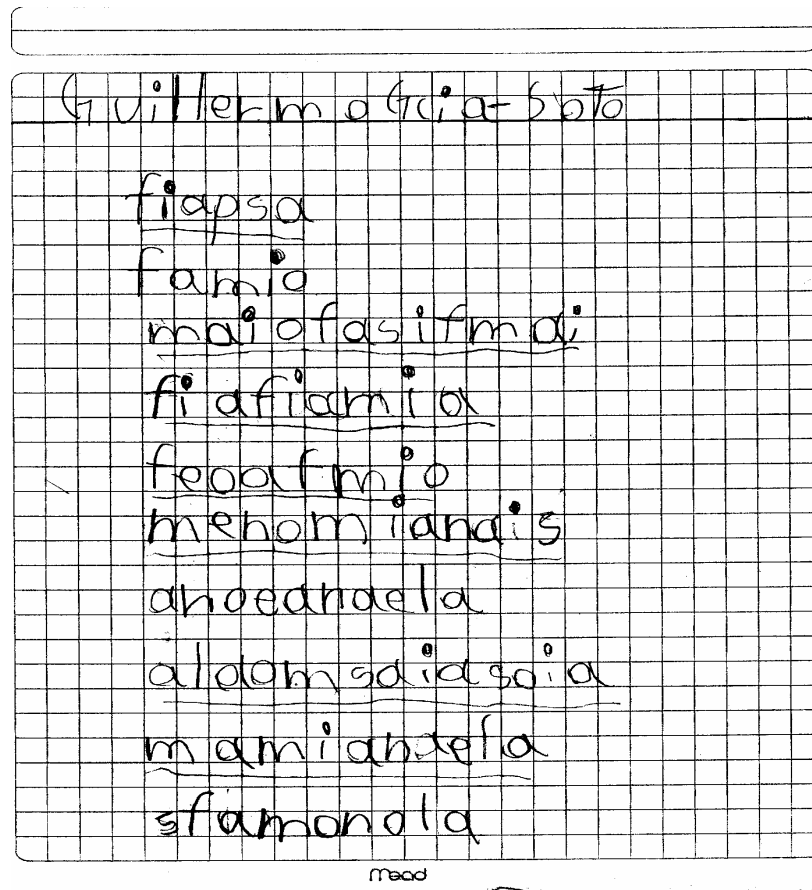 Guillermo Gcia-Soto
fiapsa
famio
maiofasifmai
fiafiamia
feoafmio
menomianais
anoeanaela
aldomsaiasaia
mamianaela
sfamonola
mead